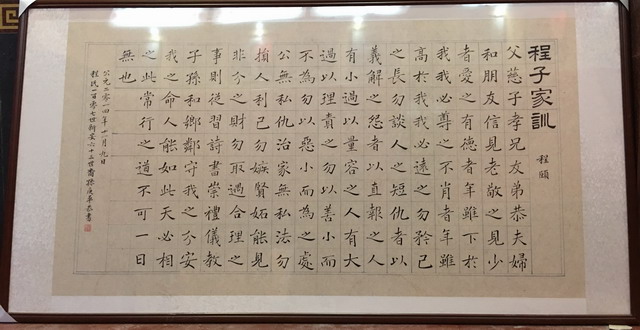 程子家訓
程頤
父慈子孝兄友弟恭夫婦
和朋友信見老敬之見少
者愛之有德者年雖下於
我我必尊之不肖者年雖
高於我我必遠之勿矜己
之長勿談人之短仇者以
義解之怨者以直報之人
有小過以量容之人有大
過以理責之勿以善小而
不為勿以惡小而為之處
公無私仇治家無私法勿
損人利己勿嫉賢妬能見
非分之財勿取遇合理之
事則從習詩書崇禮儀教
子孫和鄉鄰守我之分安
我之命人能如此天必相
之此常行之道不可一日
無也
公元二零一四年十一月九日
程氏一百零七世新安六十三世裔孫華恭書